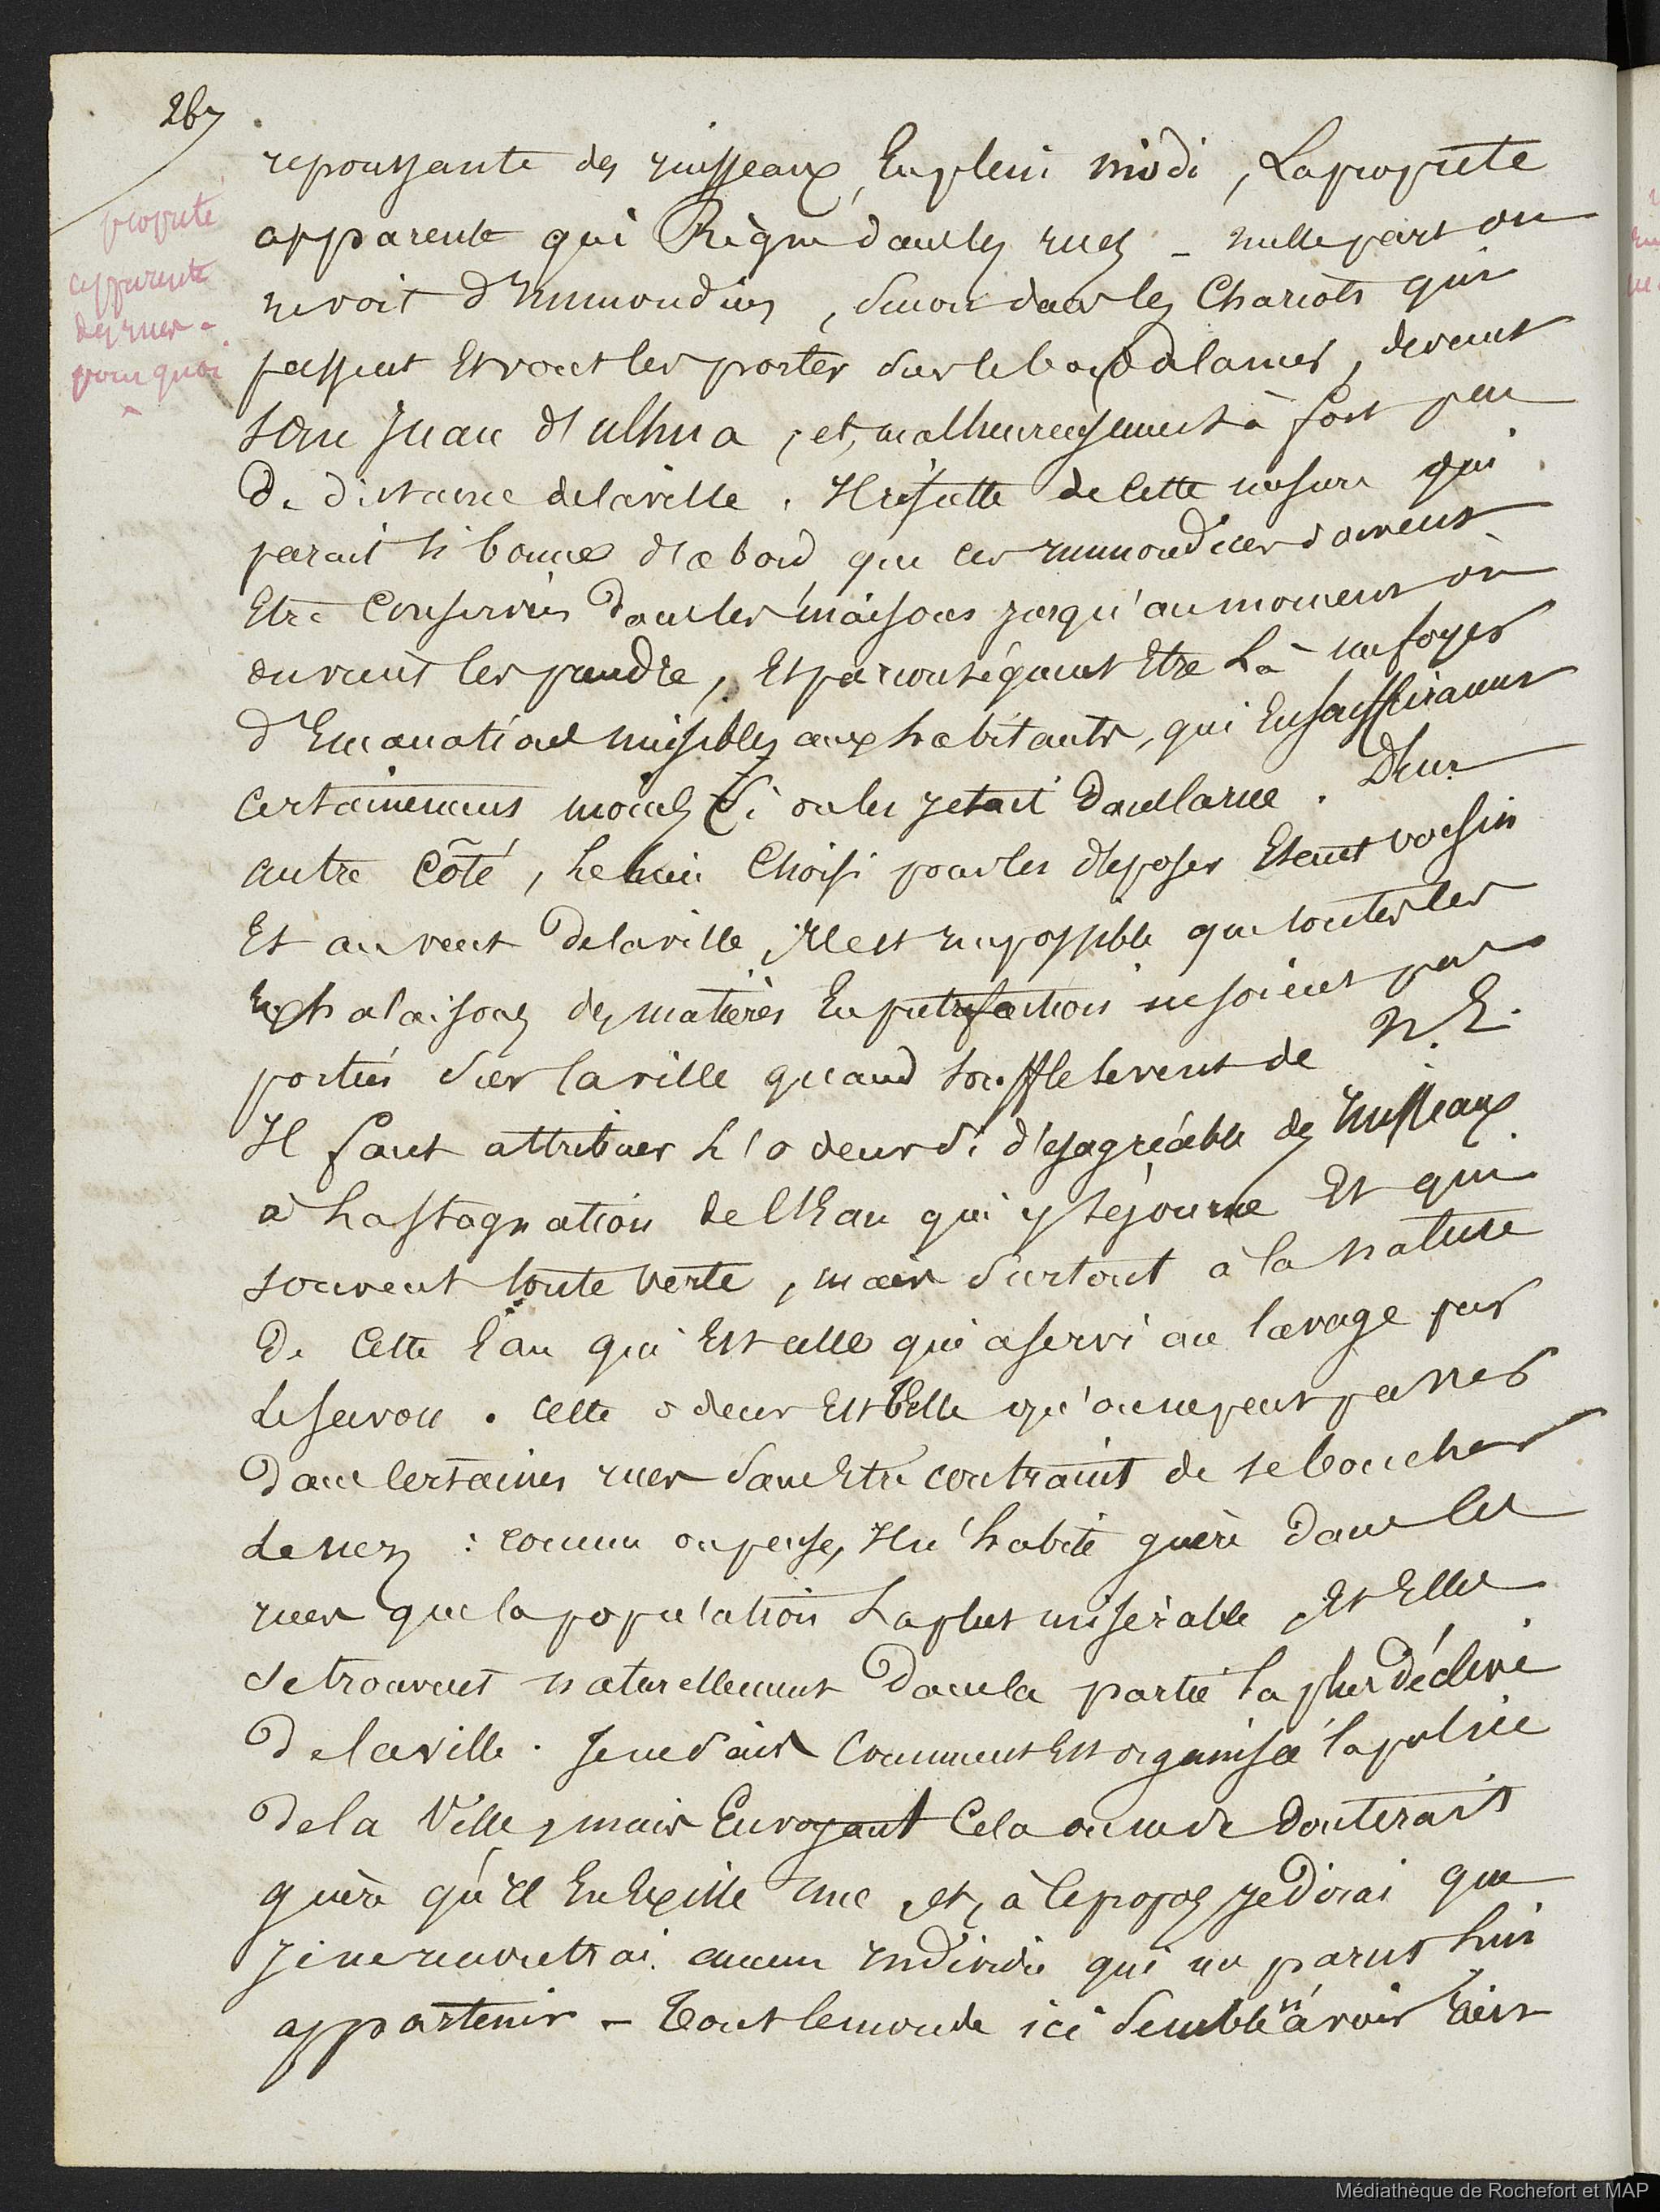 267
propreté
apparente
des rues -
pourquoi
repoussante des ruisseaux, En plein midi, La propreté
apparente qui Règne dans les rues _ nulle part on
ne voit d'Immondices, sinon dans les Chariots qui
passent Et vont les porter sur le bord de la mer, devant
San Juan d'ulhua, et, malheureusement à fort peu
De distance de la ville. Il résulte de cette mesure qui
parait si bonne d'abord, que ces immondices doivent
Etre Conservées dans les maisons jusqu'au moment où
on vient les prendre, Et par conséquent Etre Là un foyer
d'Emanations nuisibles aux habitants, qui En souffriraient
Certainement moins Si on les jetait Dans la rue. D'un
autre Côté, Le lieu Choisi pour les déposer Etant voisin
Et au vent De la ville, Il est impossible que toutes les
Exhalaisons des matières En putréfaction ne soient pas
portées sur la ville quand souffle le vent de N. E.
Il faut attribuer L'odeur si désagréable des ruisseaux
à La stagnation de l'Eau qui y séjourne Et qui
souvent toute verte, mais surtout à la nature
De Cette Eau qui Est celle qui a servi au lavage par
Le savon. Cette odeur Est telle qu'on ne peut passer
Dans Certaines rues sans Etre contraint de se boucher
Le nez : comme on pense, Il n'habite guère Dans les
rues que la population La plus misérable, Et Elles
se trouvent naturellement Dans la partie la plus déclive
De la ville. Je ne sais Comment Est organisée la police
De la Ville, mais En voyant Cela on ne se Douterait
guère qu'Il En Existe une, et, à Ce propos je Dirai que
je ne rencontrai aucun Individu qui me parut lui
appartenir - Tout le monde ici semble n'avoir rien